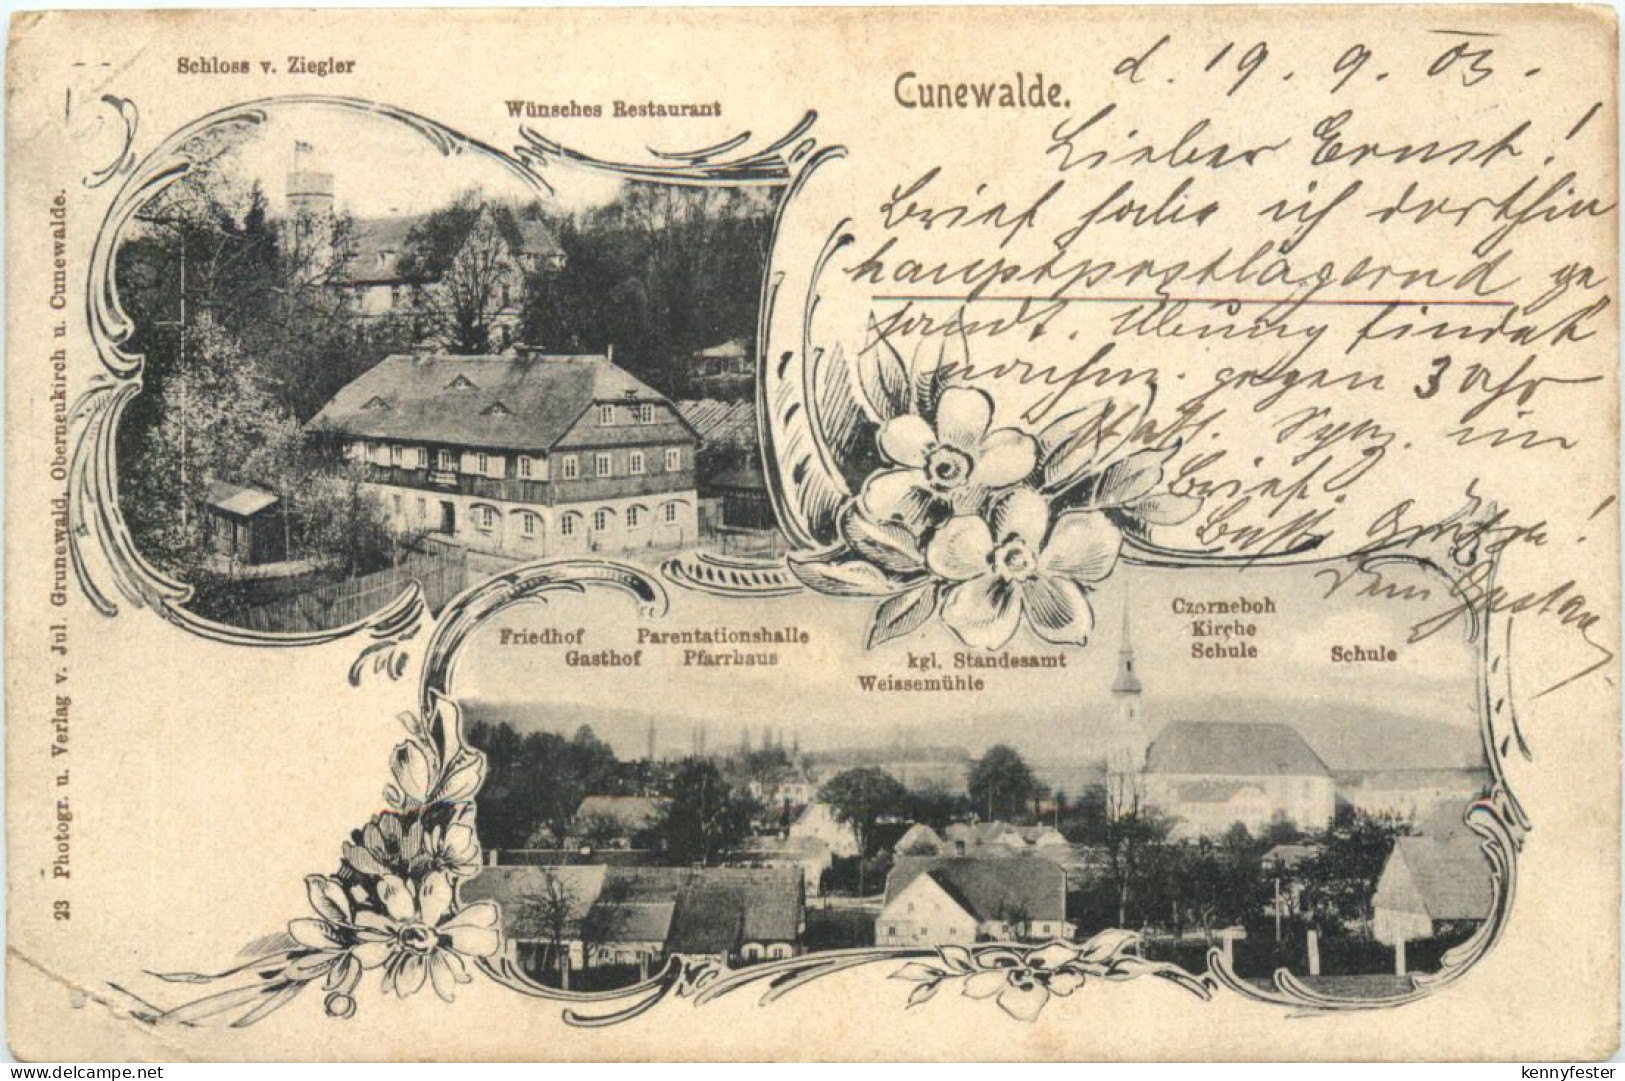 Schloss v. Ziegler
Wünsches Restaurant
Cunewalde.
d. 19. 9. 03.
Lieber Ernst!
Brief habe ich dorthin
hauptpostlagernd ge
sandt. Übung findet
nachm. gegen 3 Uhr
statt. im
Brief.
Beste Grüße!
Dein Gustav
Friedhof Parentationshalle
Gasthof Pfarrhaus
kgl. Standesamt
Weissemühle
Czorneboh
Kirche
Schule
Schule
23 Photogr. u. Verlag v. Jul. Grunewald, Oberneukirch u. Cunewalde.
www.delcampe.net
kennyfester